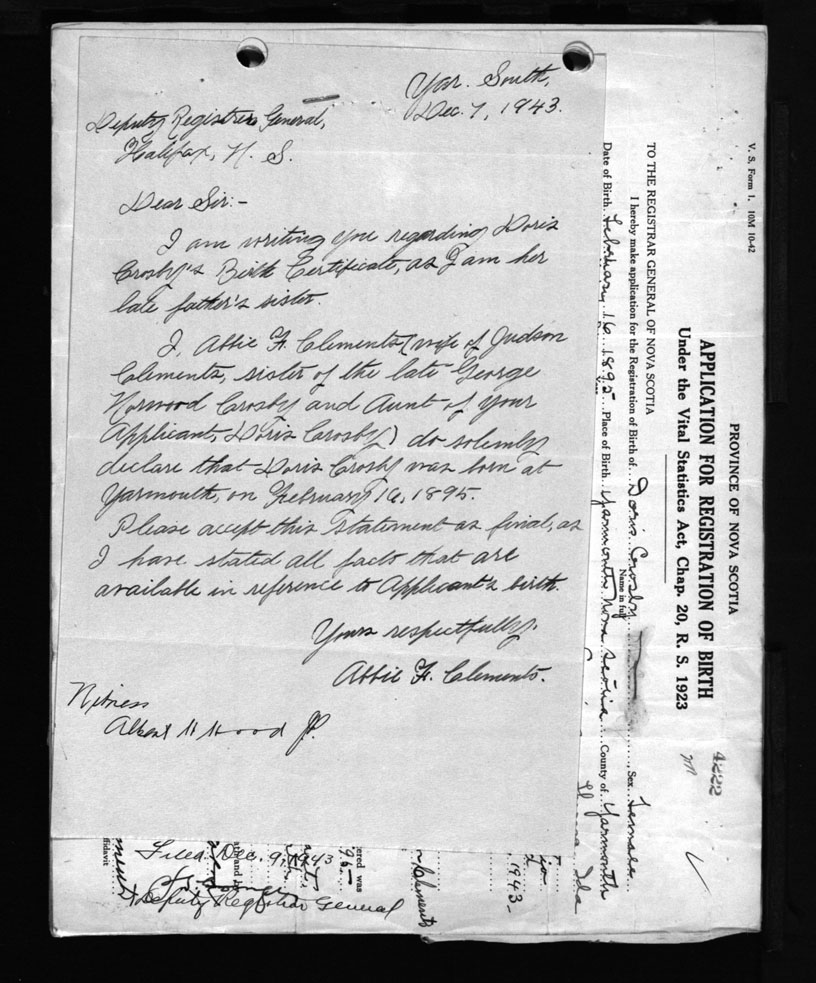 Yar. South,
Dec. 7, 1943.
Deputy Registrar General,
Halifax, N. S.
Dear Sir:-
I am writing you regarding Doris
Crosby's Birth Certificate, as I am her
late father's sister.
I, Abbie F. Clements (wife of Judson
Clements, sister of the late George
Norwood Crosby and Aunt of your
Applicant, Doris Crosby) do solemly
declare that Doris Crosby was born at
Yarmouth, on February 16, 1895.
Please accept this statement as final, as
I have stated all facts that are
available in reference to Applicant's birth.
Yours respectfully.
Abbie F. Clements.
Witness
Albert H Hood J.P.
Filed Dec. 9, 1943
Deputy Registrar General
ered was
1943
Ida
V. S. Form 1. 10M 10-42
PROVINCE OF NOVA SCOTIA
APPLICATION FOR REGISTRATION OF BIRTH
Under the Vital Statistics Act, Chap. 20, R. S. 1923
4222
TO THE REGISTRAR GENERAL OF NOVA SCOTIA
I hereby make application for the Registration of Birth of Doris Crosby Sex Female
Name in full
Date of Birth February 16 1895 Place of Birth Yarmouth Nova Scotia County of Yarmouth